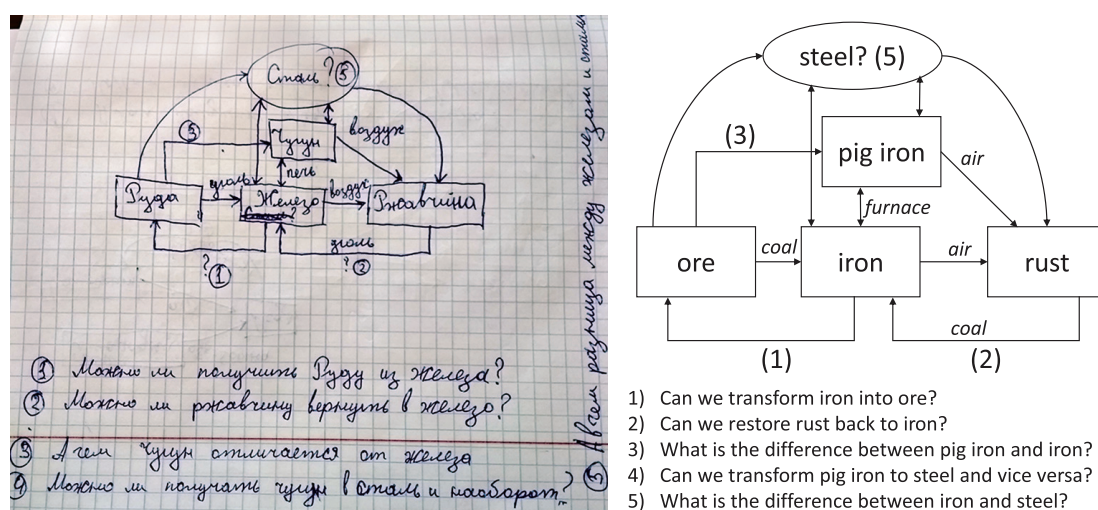 Сталь? ⑤
③
Чугун
воздух
печь
Руда
уголь
Железо
воздух
Ржавчина
? ①
уголь
? ②
① Можно ли получить Руду из железа?
② Можно ли ржавчину вернуть в железо?
③ А чем Чугун отличается от железа
④ Можно ли получать чугун в сталь и наоборот?
⑤ А в чем разница между железом и сталью
steel? (5)
(3)
pig iron
air
furnace
ore
coal
iron
air
rust
coal
(1)
(2)
1) Can we transform iron into ore?
2) Can we restore rust back to iron?
3) What is the difference between pig iron and iron?
4) Can we transform pig iron to steel and vice versa?
5) What is the difference between iron and steel?